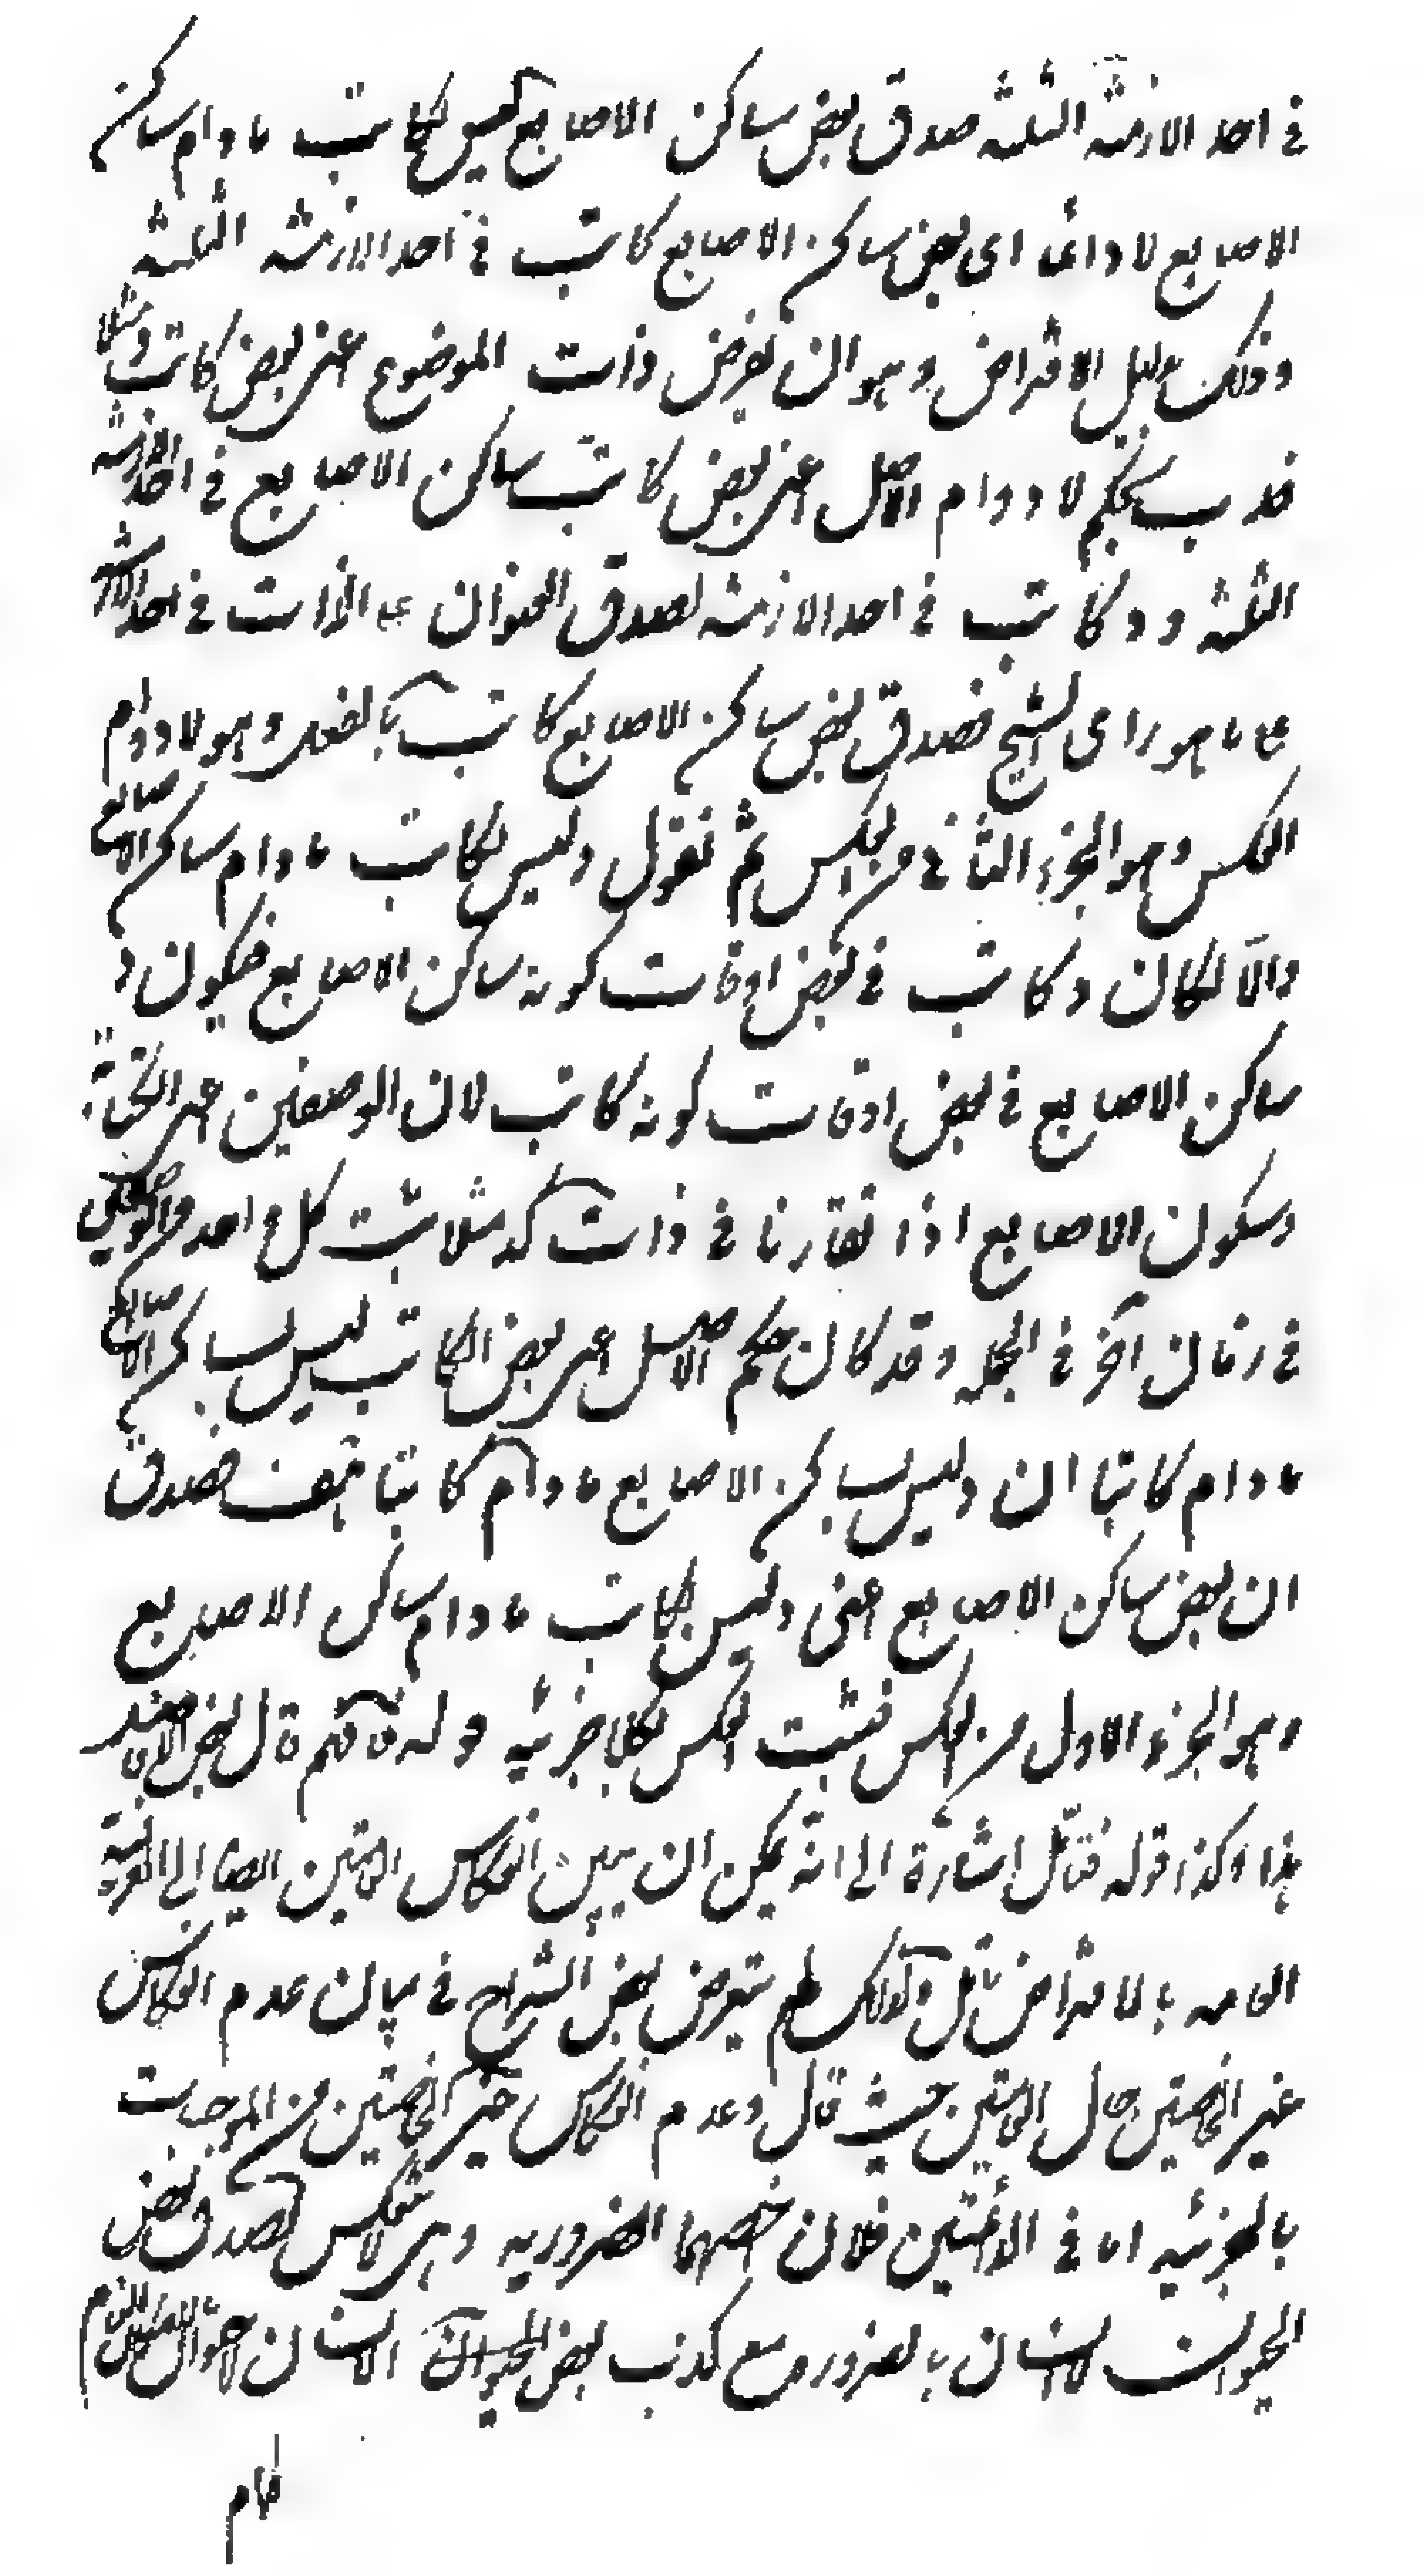 في احد الازمنة الثلثه صدق بعض ساكن الاصابع ليس بكاتب ما دام ساكن
الاصابع لا دائما اى بعض ساكن الاصابع كاتب في احد الازمنة الثلثة
وذلك بدليل الافتراض وهو ان نفرض ذات الموضوع اعنى بعض كاتب د مثلا
فد ب بحكم لا دوام الاصل اعنى بعض كاتب ساكن الاصابع في احد الازمنة
الثلثة ود كاتب في احد الازمنة لصدق العنوان على الذات في احد الازمنة
على ما هو راى الشيخ فصدق بعض ساكن الاصابع كاتب بالفعل وهو لا دوام
العكس وهو الجزء الثاني من العكس ثم نقول د ليس بكاتب ما دام ساكن الاصابع
والا لكان د كاتب في بعض اوقات كونه ساكن الاصابع فيكون د
ساكن الاصابع في بعض اوقات كونه كاتب لان الوصفين اعنى الكتابة
وسكون الاصابع اذا تقارنا في ذات كد مثلا ثبت كل واحد من الوصفين
في زمان آخر في الجملة وقد كان حكم الاصل اعنى بعض الكاتب ليس بساكن الاصابع
ما دام كاتبا ان د ليس بساكن الاصابع ما دام كاتبا هف فصدق
ان بعض ساكن الاصابع اعنى د ليس بكاتب ما دام ساكن الاصابع
وهو الجزء الاول من العكس فثبت العكس بكلا جزئيه قوله فافهم قال بعض الافاضل
هذا وكذا قوله فتامل اشارة الى انه يمكن ان يبين انعكاس الخاصتين ايضا الى العرفية
العامه بالافتراض تامل ولذلك لم يتعرض بعض الشراح في بيان عدم انعكاس
غير الخاصتين حال الخاصتين حيث قال وعدم انعكاس غير الخاصتين من الموجبات
بالجزئيه اما في الدائمتين فلان اخصهما الضروريه وهى لا تنعكس لصدق بعض
الحيوان ليس بانسان بالضرورة مع كذب بعض الحيوان الانسان
العام